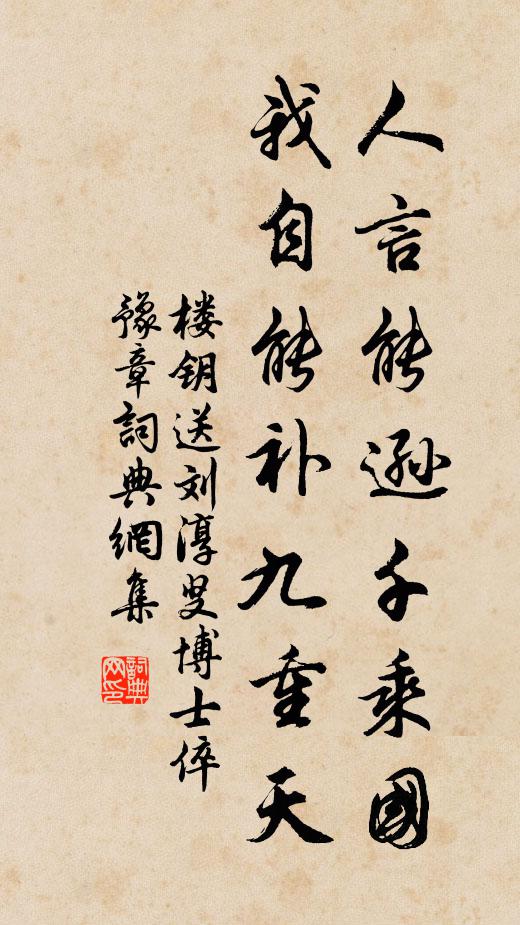 人言能遜千乘國
我自能补九重天
楼钥送刘淳叟博士倅
豫章詞典網集
詞典网印